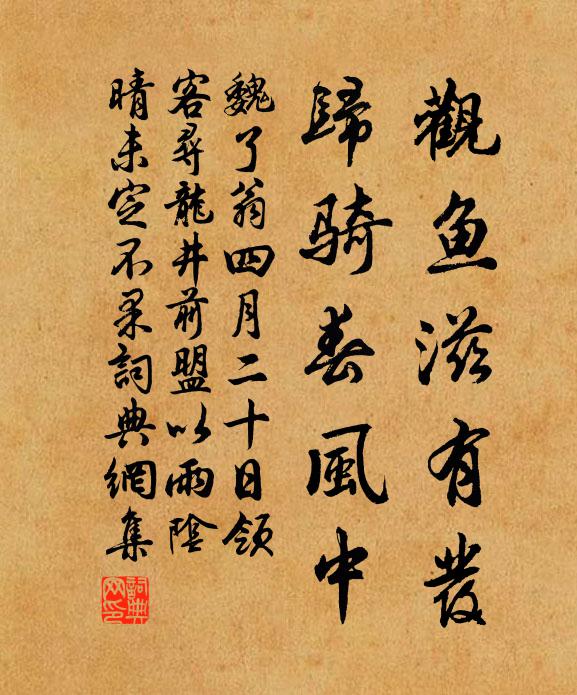 觀魚滋有發
歸騎春風中
魏了翁四月二十日領
客尋龍井前盟以雨陰
晴未定不果詞典網集
詞典
网印